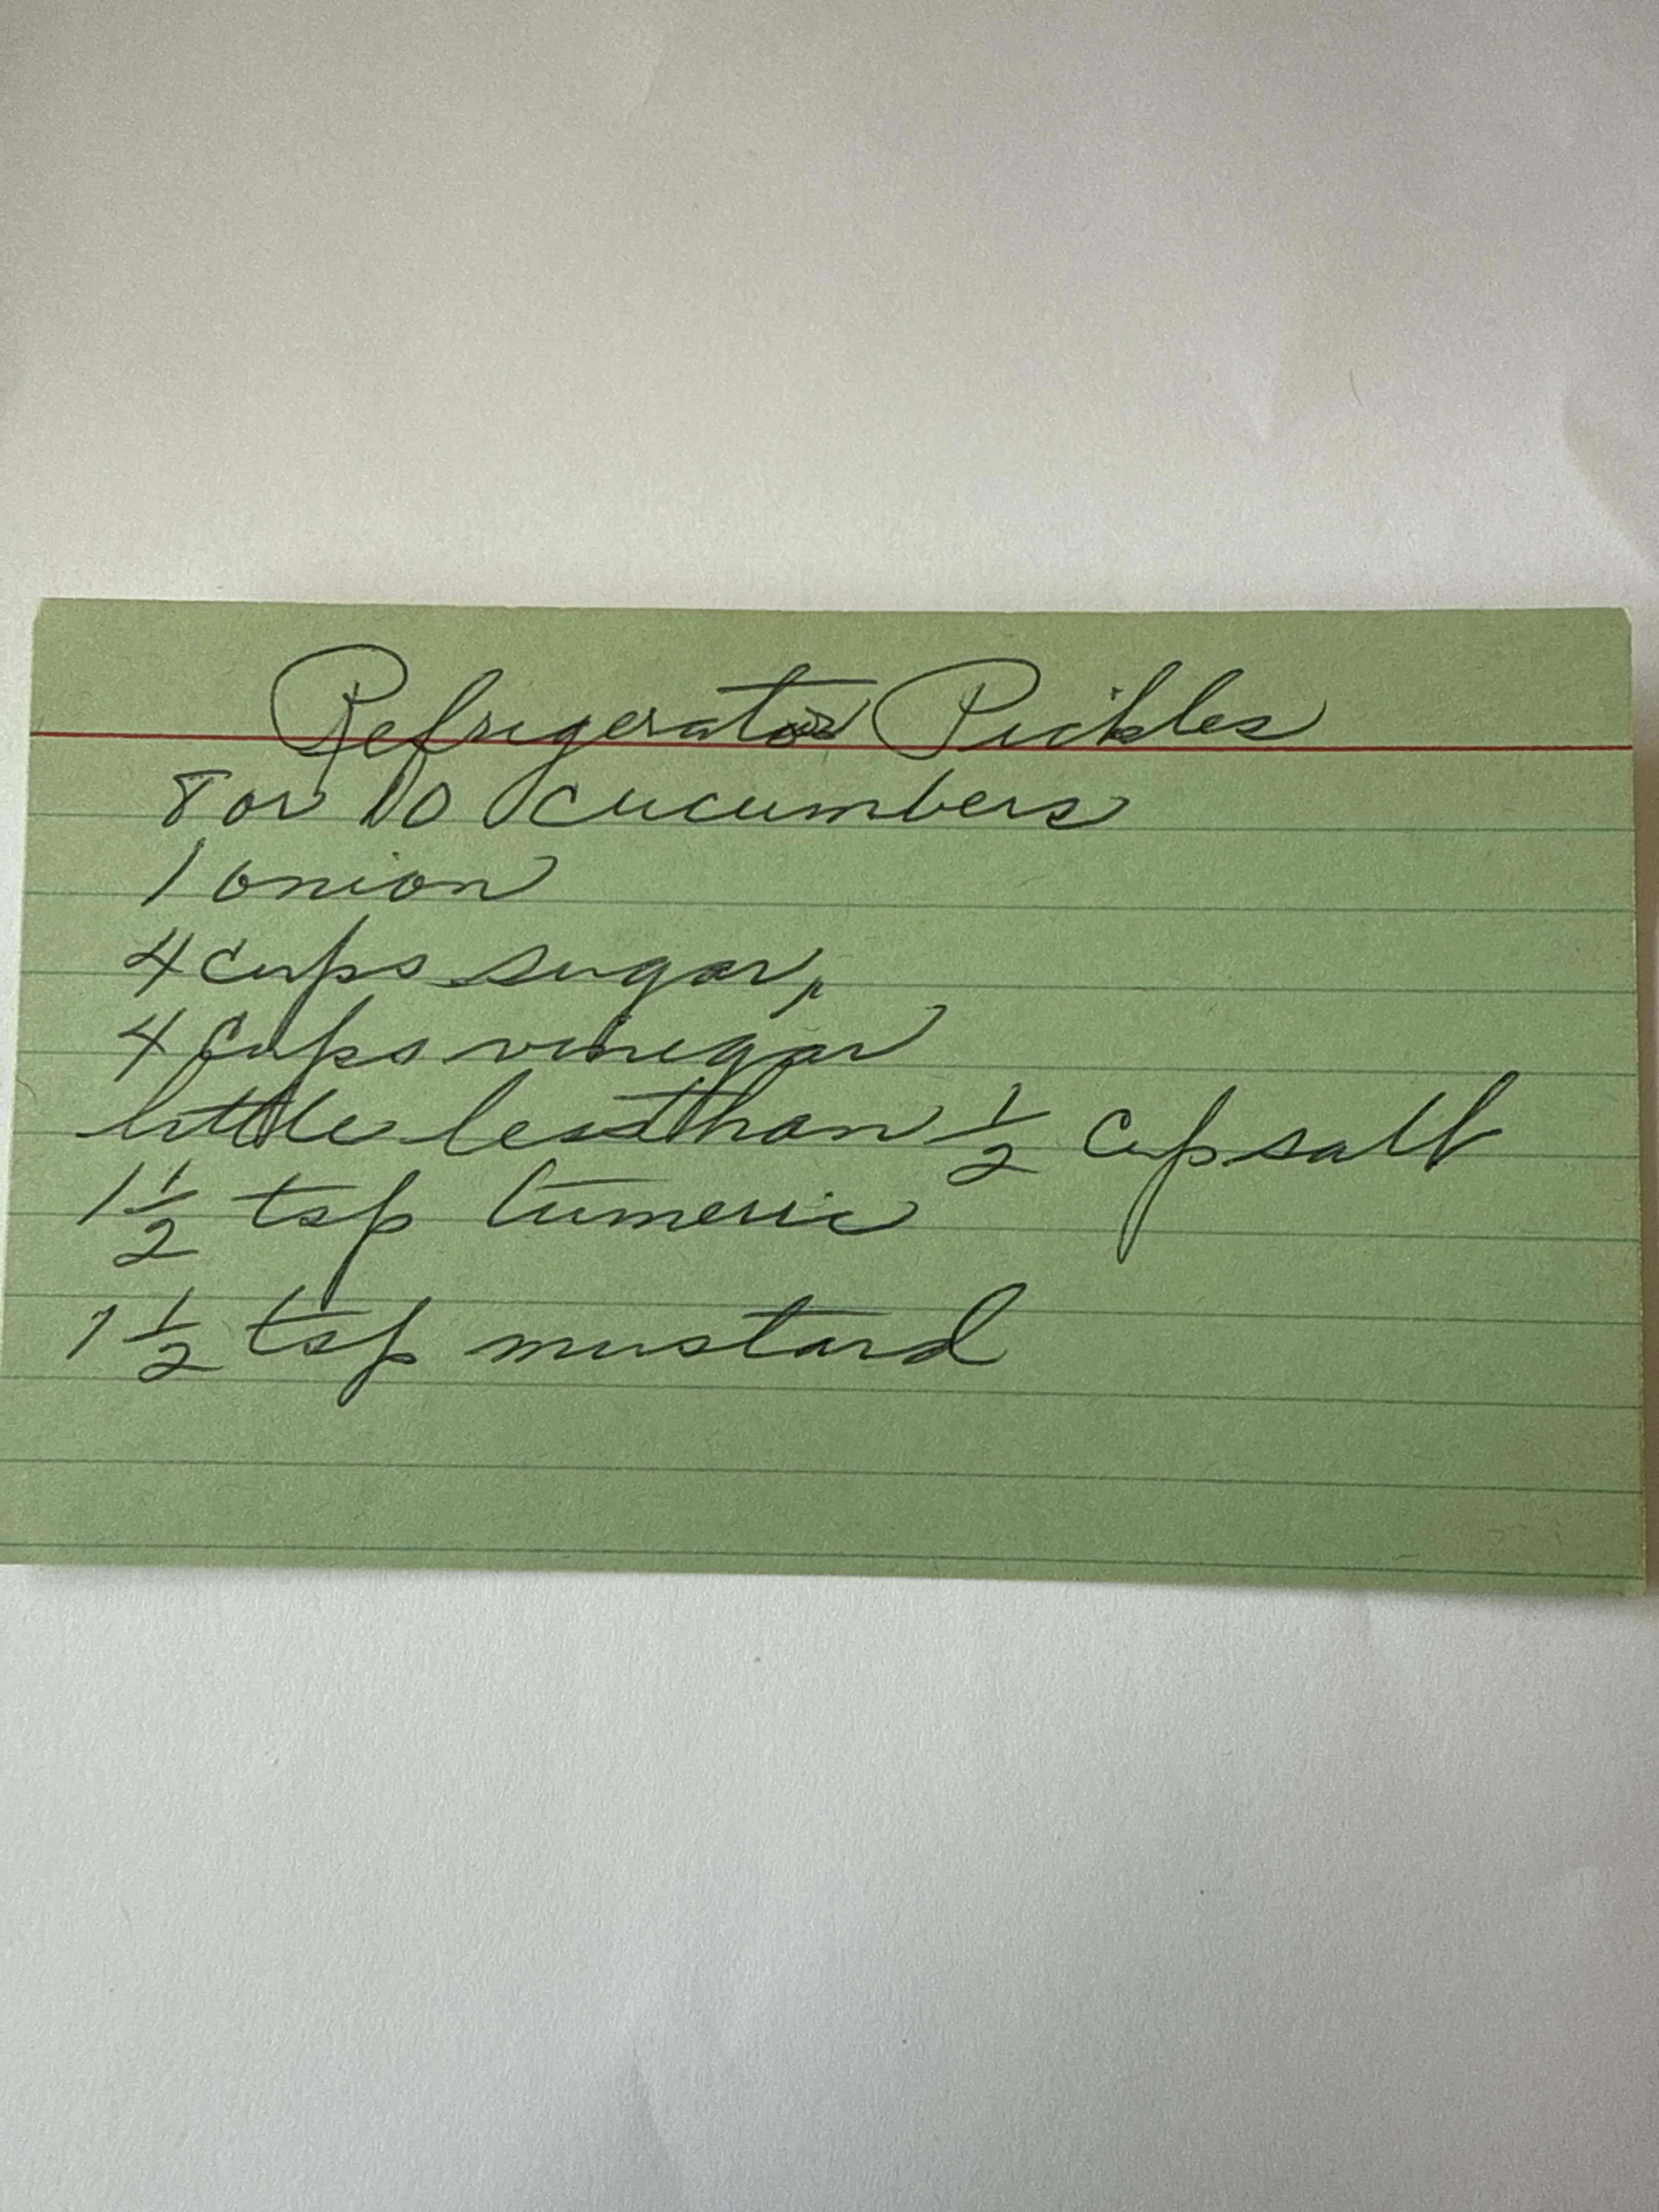 Refrigerator Pickles
8 or 10 cucumbers
1 onion
4 cups sugar,
4 cups vinegar
little less than 1/2 cup salt
1 1/2 tsp tumeric
1 1/2 tsp mustard